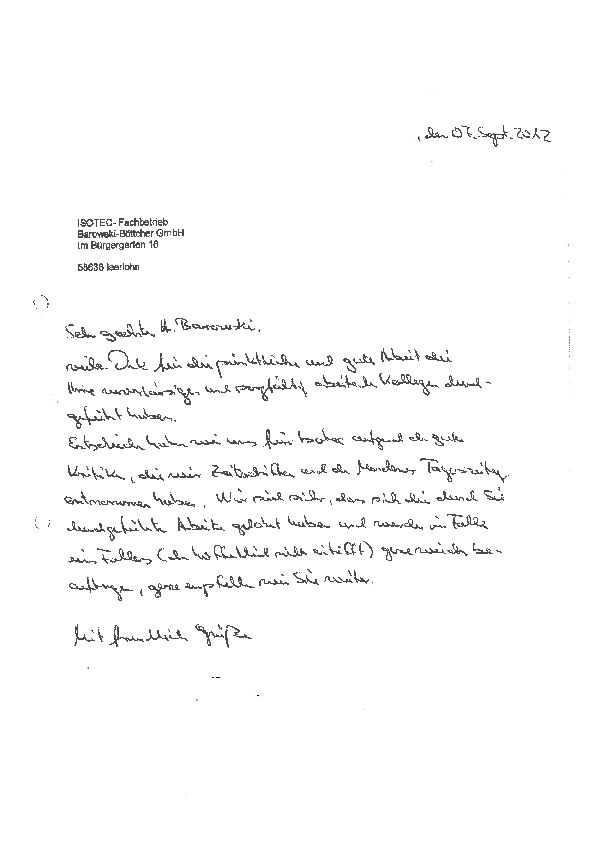 , den 07. Sept. 2012
ISOTEC- Fachbetrieb
Barowski-Böttcher GmbH
Im Bürgergarten 16
58636 Iserlohn
Sehr geehrter H. Barowski,
vielen Dank für die pünktliche und gute Arbeit die
Ihre zuverlässigen und sorgfältig arbeitenden Kollegen durch-
geführt haben.
Entschieden haben wir uns für Isotec aufgrund der guten
Kritiken, die wir Zeitschriften und der Mendener Tageszeitung
entnommen haben. Wir sind sicher, dass sich die durch Sie
durchgeführten Arbeiten gelohnt haben und werden im Falle
eines Falles (der hoffentlich nicht eintrifft) gerne wieder be-
auftragen, gerne empfehlen wir Sie weiter.
Mit freundlichen Grüßen